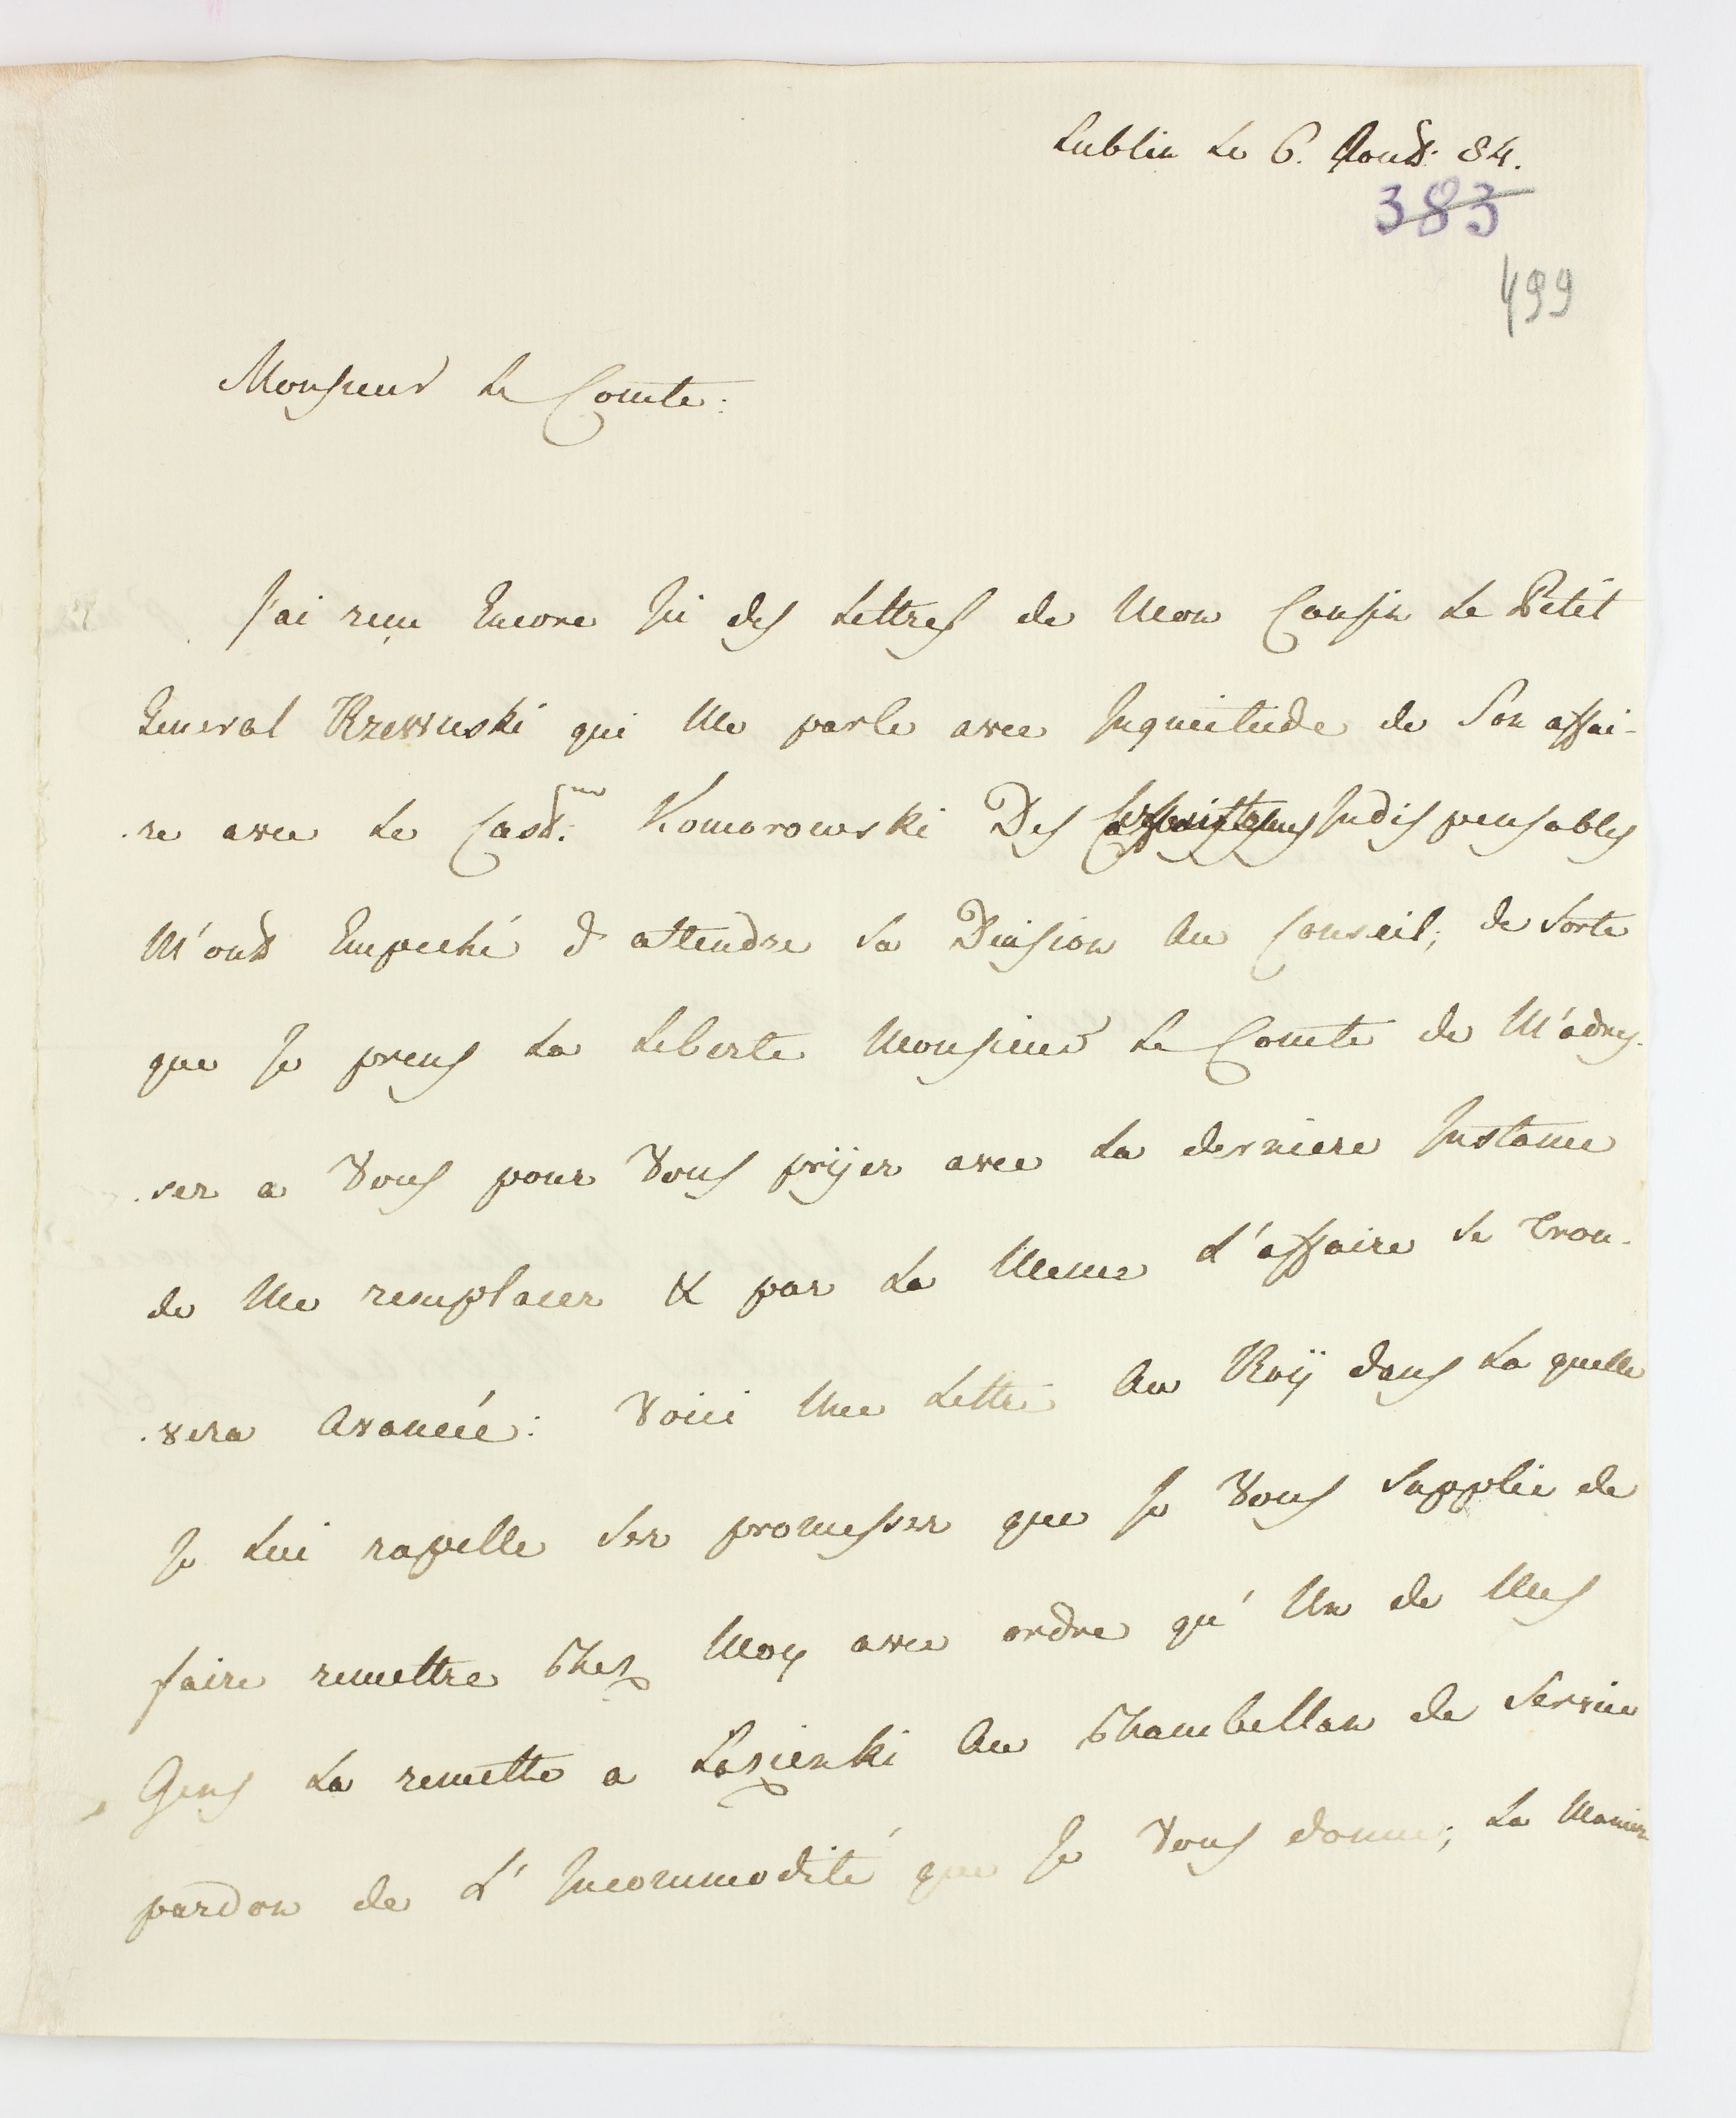 Lublin Le 6. Aoust: 84.
383
499
Monsieur Le Comte:
J'ai reçu Encore Ici des Lettres de Mon Cousin Le Petit
General Rzewuski qui Me parle avec Inquietude de Son affai-
-re avec Le Cast:
Komorowski Des Indispensables
M'ont Empeché d'attendre Sa Decision Au Conseil; de Sorte
que Je prens La Liberte Monsieur Le Comte de M'adres-
-ser a Vous pour Vous prijer avec La derniere Instance
de Me remplacer & par La Meme L'affaire Se trou-
-vera Avancée: Voici Une Lettre Au Roÿ dans La quelle
Je Lui rapelle Ses promesses que Je Vous Supplie de
faire remettre Chez Moy avec ordre qu'Un de Mes
Gens La remette a Lazienki Au Chambellan de Service
pardon de L'Incommodité que Je Vous donne; La Maniere